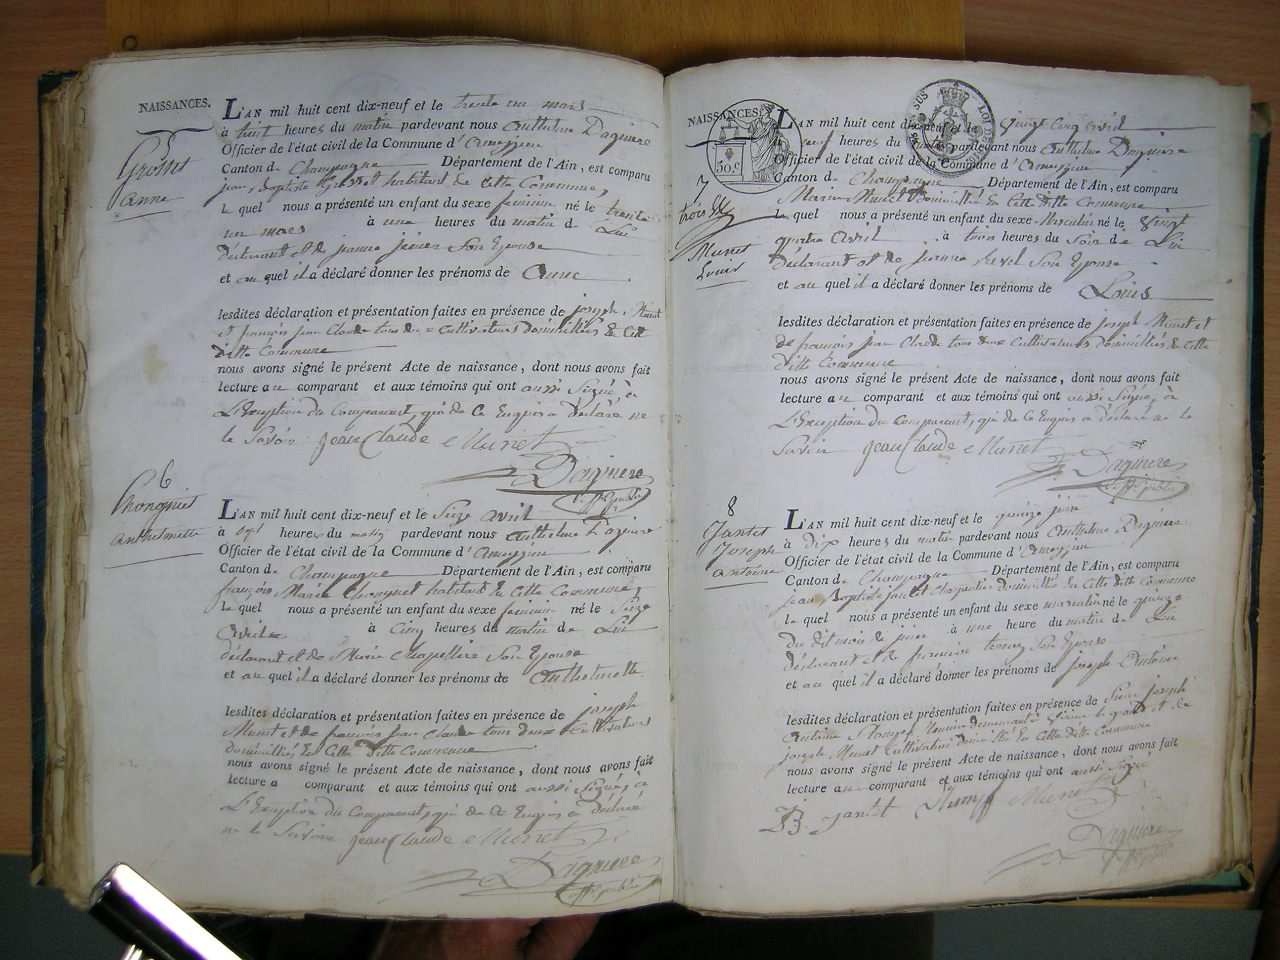 NAISSANCES.
5
Anne
L'AN mil huit cent dix-neuf et le trente un mars
à huit heures du matin pardevant nous Anthelme Daguiere
Officier de l'état civil de la Commune d'Ameyzieu
Canton de Champagne Département de l'Ain, est comparu
jean Baptiste habitant de Cette Commune,
le quel nous a présenté un enfant du sexe feminin né le trente
un mars à une heures du matin de Lui
déclarant et de son Epouse
et au quel il a déclaré donner les prénoms de Anne
lesdites déclaration et présentation faites en présence de joseph Munet
et françois jean Claude tous deux Cultivateurs domiciliés en Cette
ditte Commune
nous avons signé le présent Acte de naissance, dont nous avons fait
lecture au comparant et aux témoins qui ont aussi Signé, à
L'Exception du Comparant, qui de Ce Enquis a Déclaré ne
le Savoir jean Claude Munet
Daguiere
off. public
6
Anthelmette
L'AN mil huit cent dix-neuf et le Seize avril
à heures du matin pardevant nous anthelme Daguiere
Officier de l'état civil de la Commune d'Ameyzieu
Canton de Champagne Département de l'Ain, est comparu
françois Marie habitant en Cette Commune,
le quel nous a présenté un enfant du sexe feminin né le Seize
Avril à Cinq heures du matin de Lui
déclarant et de Marie Chapelliere Son Epouse
et au quel il a déclaré donner les prénoms de Anthelmette
lesdites déclaration et présentation faites en présence de joseph
Munet et de françois jean Claude tous deux Cultivateurs
domiciliés en Cette ditte Commune
nous avons signé le présent Acte de naissance, dont nous avons fait
lecture au comparant et aux témoins qui ont aussi Signé, à
L'Exception du Comparant, qui de Ce Enquis a déclaré
ne le Savoir jean Claude Munet
Daguiere
off. public
NAISSANCES.
50 c
7
Munet
Louis
L'AN mil huit cent dix-neuf et le Vingt Cinq avril
à neuf heures du matin pardevant nous Anthelme Daguiere
Officier de l'état civil de la Commune d'Ameyzieu
Canton de Champagne Département de l'Ain, est comparu
Marin Munet domicilié en Cette ditte Commune
le quel nous a présenté un enfant du sexe Masculin né le Vingt
quatre Avril à trois heures du Soir de Lui
Déclarant et de Son Epouse
et au quel il a déclaré donner les prénoms de Louis
lesdites déclaration et présentation faites en présence de joseph Munet et
de françois jean Claude tous deux Cultivateurs domiciliés en Cette
ditte Commune
nous avons signé le présent Acte de naissance, dont nous avons fait
lecture au comparant et aux témoins qui ont aussi Signé, à
L'Exception du comparant, qui de Ce Enquis a déclaré ne le
Savoir jean Claude Munet
Daguiere
off. public
8
Jantet
Joseph
antoine
L'AN mil huit cent dix-neuf et le quinze juin
à dix heures du matin pardevant nous Anthelme Daguiere
Officier de l'état civil de la Commune d'Ameyzieu
Canton de Champagne Département de l'Ain, est comparu
jean Baptiste jantet Charpentier domicilié en Cette ditte Commune
le quel nous a présenté un enfant du sexe masculin né le quinze
du dit mois de juin à une heure du matin de Lui
déclarant et de Son Epouse
et au quel il a déclaré donner les prénoms de joseph Antoine
lesdites déclaration et présentation faites en présence de Sieur joseph
Antoine et de
joseph Munet Cultivateur domicilié en Cette ditte Commune
nous avons signé le présent Acte de naissance, dont nous avons fait
lecture au comparant et aux témoins qui ont aussi Signé
J B. jantet Munet
Daguiere
off. public